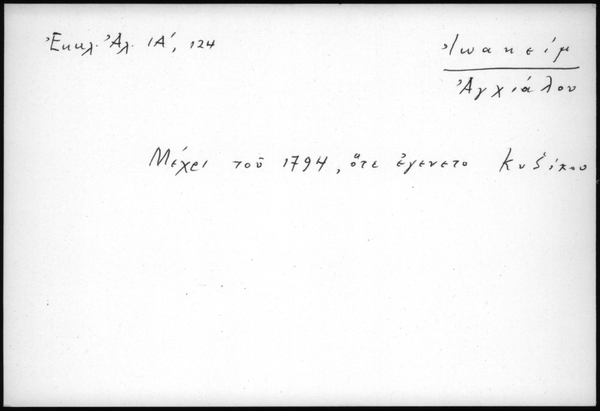 Ἐκκλ. Ἀλ. ΙΑ΄, 124
Ἰωακείμ
Ἀγχιάλου
Μέχρι τοῦ 1794, ὅτε ἐγένετο Κυζίκου